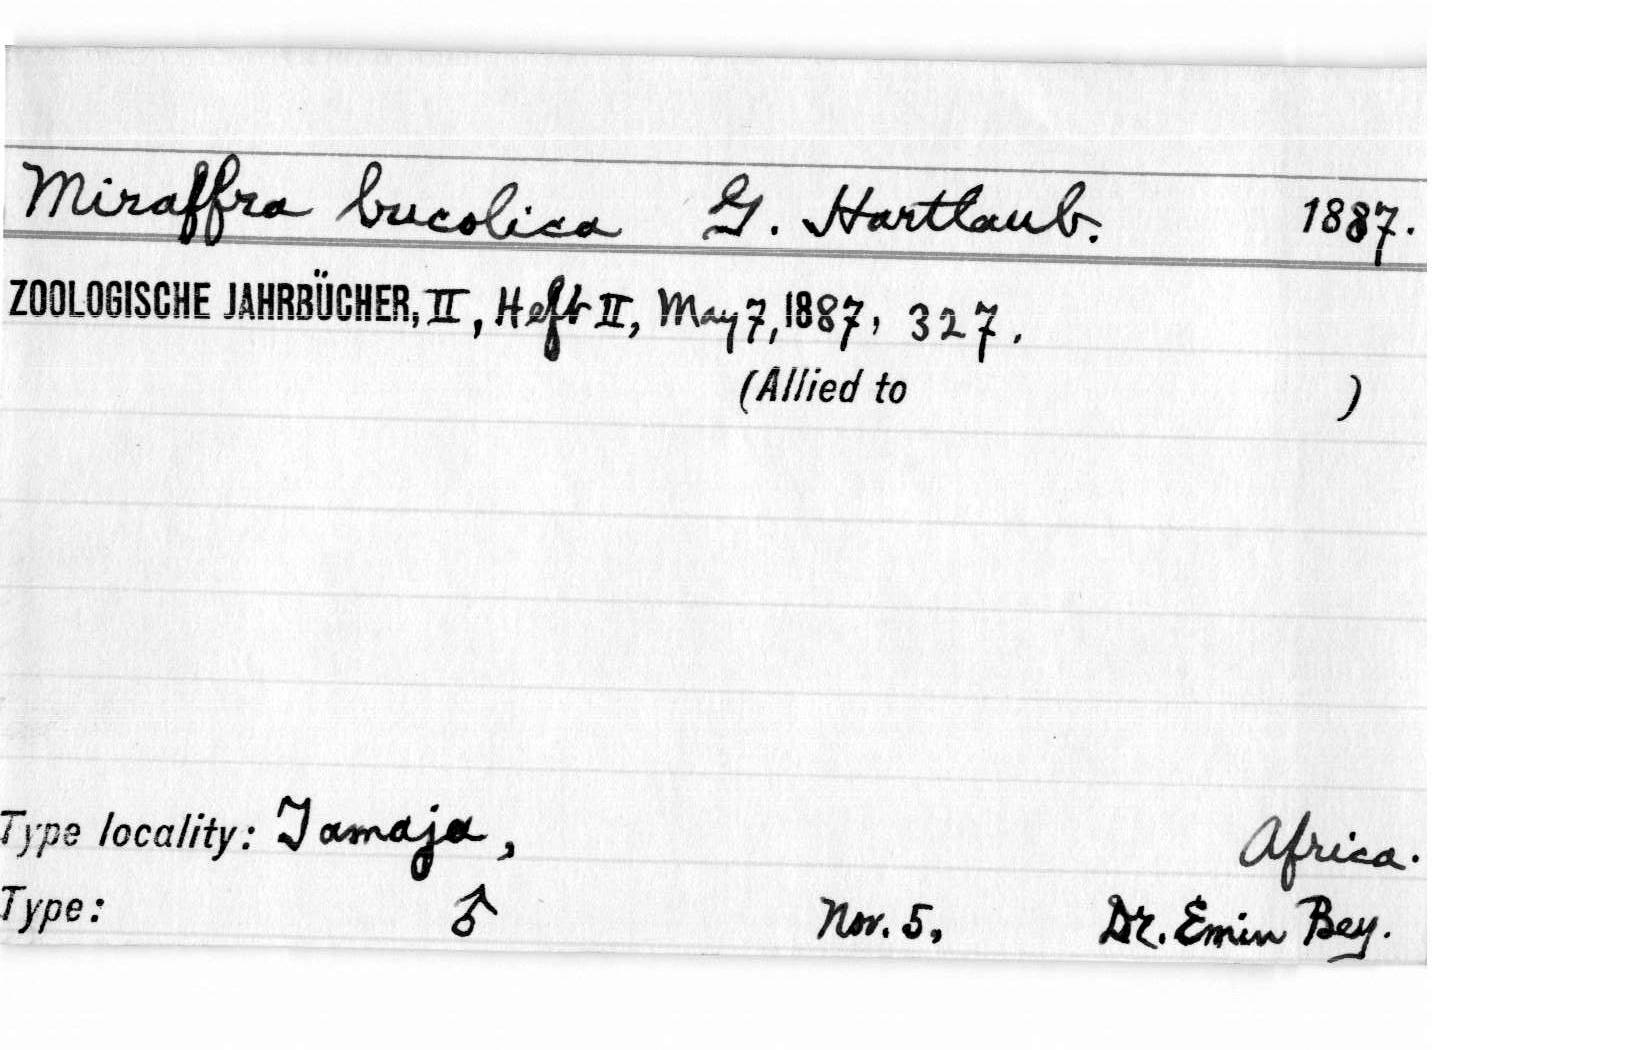 Miraffra bucolica G. Hartlaub. 1887.
ZOOLOGISCHE JAHRBÜCHER, II, Heft II, May 7, 1887, 327.
(Allied to )
Type locality: Tamaja, Africa.
Type: ♂ Nov. 5, Dr. Emin Bey.